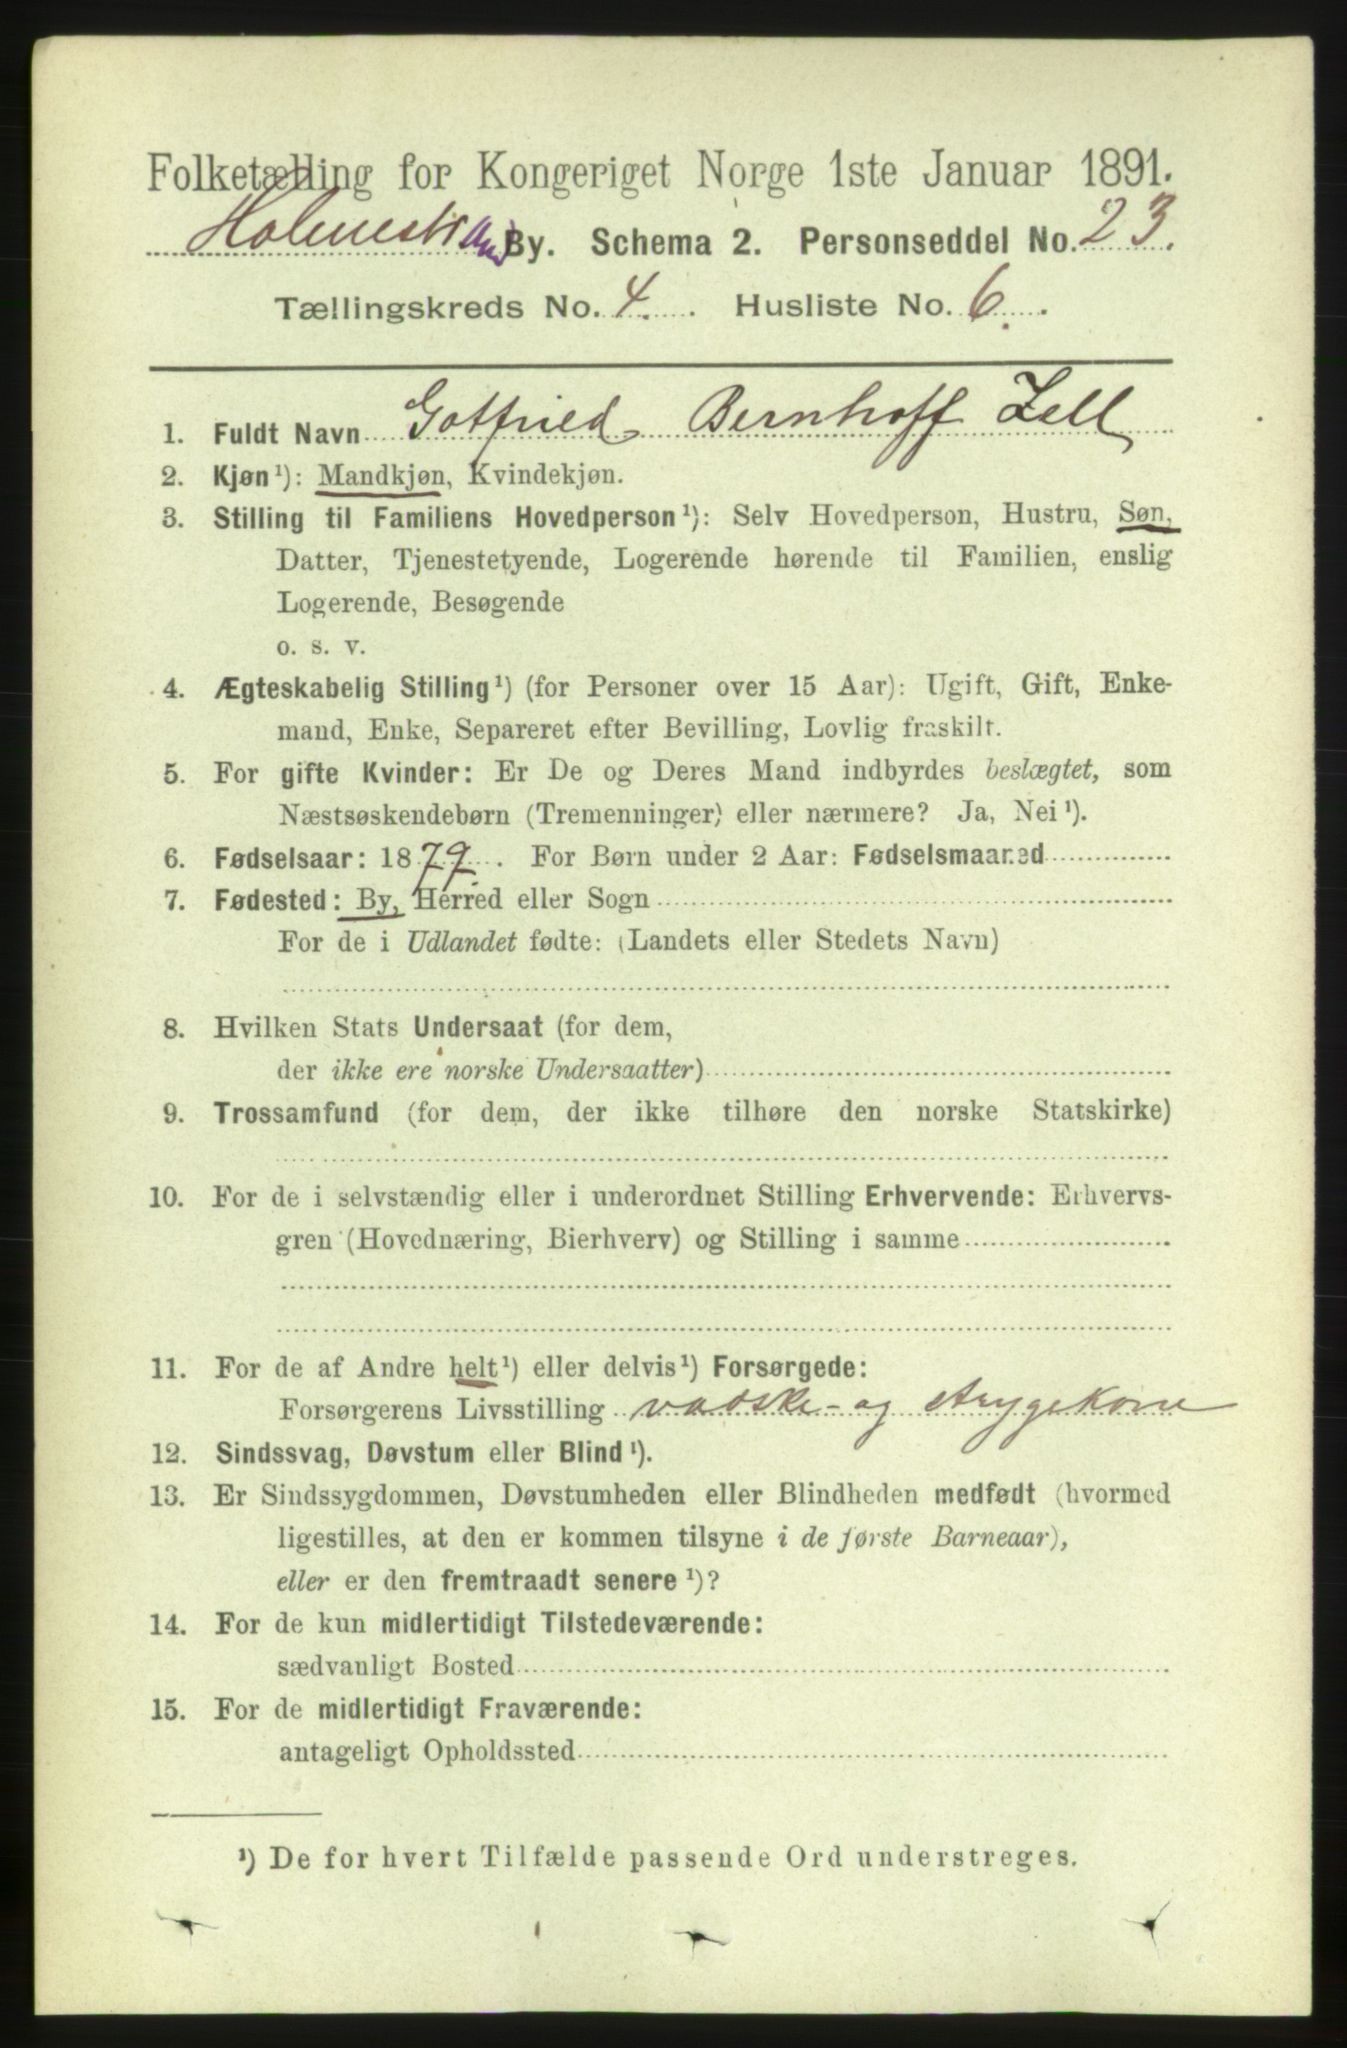 Folketælling for Kongeriget Norge 1ste Januar 1891.
Holmestrand By. Schema 2. Personseddel No. 23.
Tællingskreds No. 4. Husliste No. 6.
1. Fuldt Navn Gotfried Bernhoff Zell
2. Kjøn¹): Mandkjøn, Kvindekjøn.
3. Stilling til Familiens Hovedperson¹): Selv Hovedperson, Hustru, Søn,
Datter, Tjenestetyende, Logerende hørende til Familien, enslig
Logerende, Besøgende
o. s. v.
4. Ægteskabelig Stilling¹) (for Personer over 15 Aar): Ugift, Gift, Enke-
mand, Enke, Separeret efter Bevilling, Lovlig fraskilt.
5. For gifte Kvinder: Er De og Deres Mand indbyrdes beslægtet, som
Næstsøskendebørn (Tremenninger) eller nærmere? Ja, Nei¹).
6. Fødselsaar: 1879. For Børn under 2 Aar: Fødselsmaaned
7. Fødested: By, Herred eller Sogn
For de i Udlandet fødte: (Landets eller Stedets Navn)
8. Hvilken Stats Undersaat (for dem,
der ikke ere norske Undersaatter)
9. Trossamfund (for dem, der ikke tilhøre den norske Statskirke)
10. For de i selvstændig eller i underordnet Stilling Erhvervende: Erhvervs-
gren (Hovednæring, Bierhverv) og Stilling i samme
11. For de af Andre helt¹) eller delvis¹) Forsørgede:
Forsørgerens Livsstilling vadske- og strygekone
12. Sindssvag, Døvstum eller Blind¹).
13. Er Sindssygdommen, Døvstumheden eller Blindheden medfødt (hvormed
ligestilles, at den er kommen tilsyne i de første Barneaar),
eller er den fremtraadt senere¹)?
14. For de kun midlertidigt Tilstedeværende:
sædvanligt Bosted
15. For de midlertidigt Fraværende:
antageligt Opholdssted
¹) De for hvert Tilfælde passende Ord understreges.